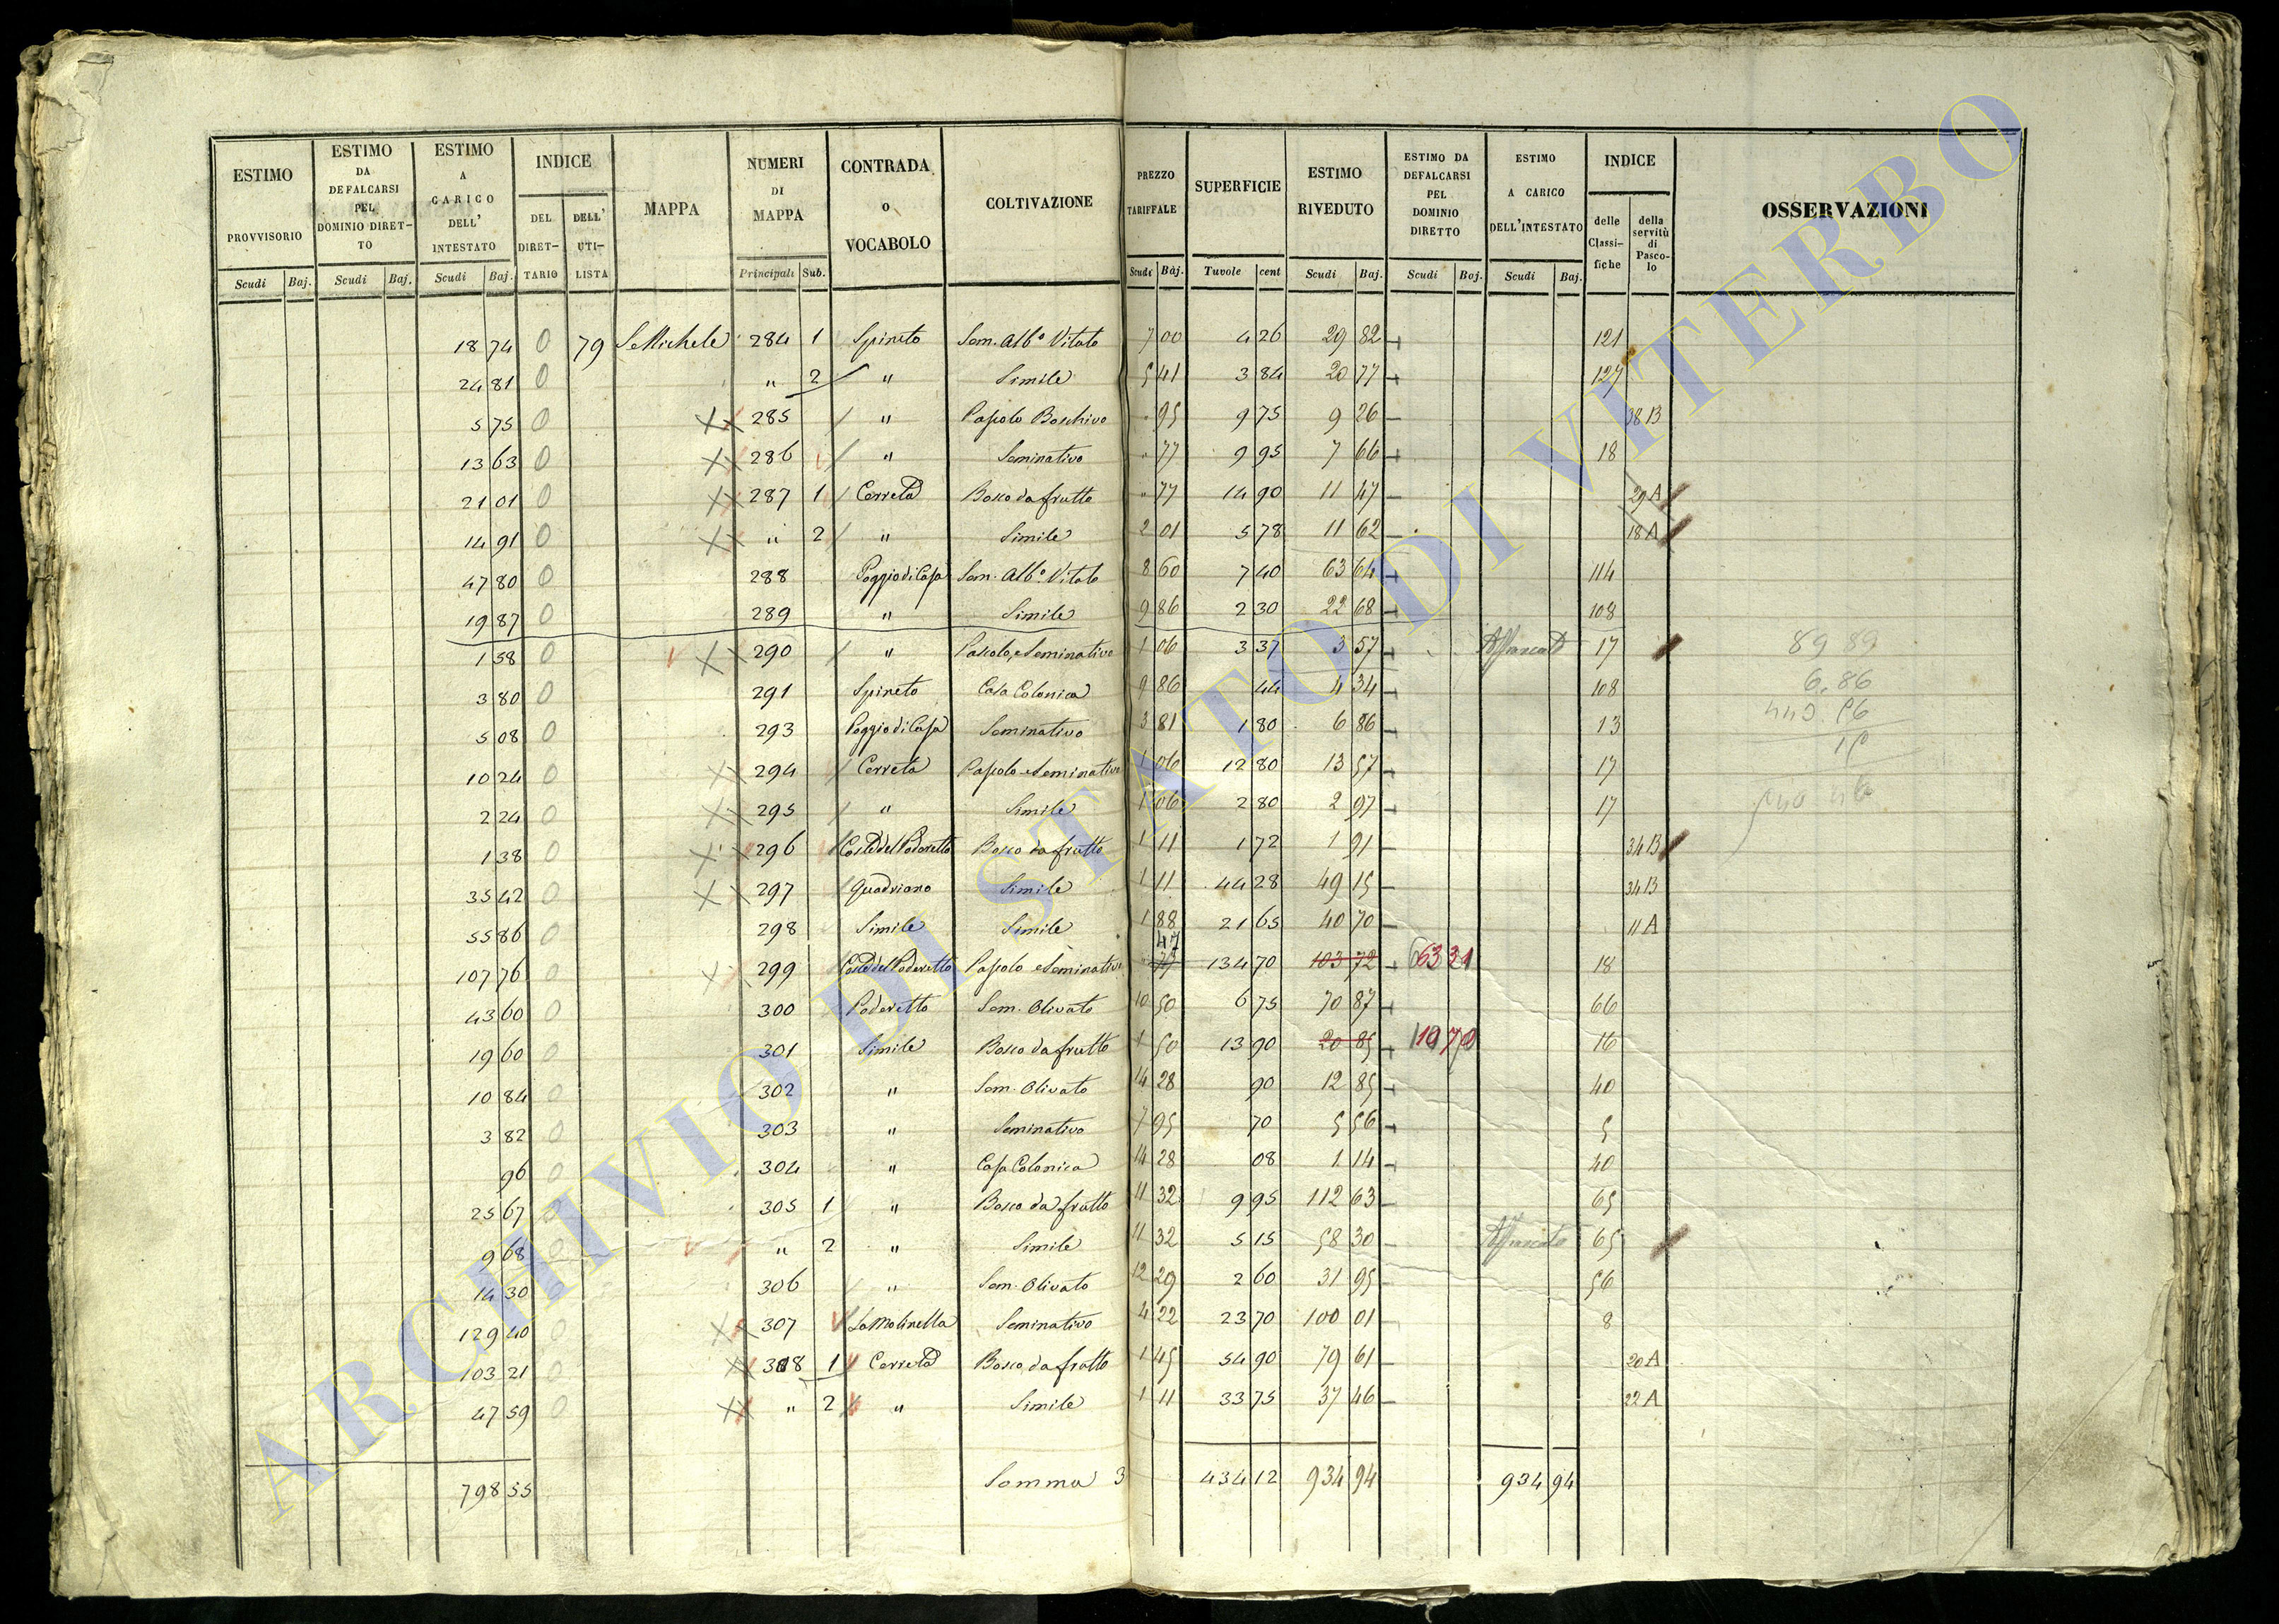 ESTIMO PROVVISORIO Scudi Baj.
ESTIMO DA DEFALCARSI PEL DOMINIO DIRET-TO Scudi Baj.
ESTIMO A CARICO DELL' INTESTATO Scudi Baj.
INDICE DEL DIRET-TARIO DELL' UTI-LISTA
MAPPA
NUMERI DI MAPPA Principali Sub.
CONTRADA o VOCABOLO
COLTIVAZIONE
PREZZO TARIFFALE Scudi Baj.
SUPERFICIE Tavole cent
ESTIMO RIVEDUTO Scudi Baj.
ESTIMO DA DEFALCARSI PEL DOMINIO DIRETTO Scudi Baj.
ESTIMO A CARICO DELL'INTESTATO Scudi Baj.
INDICE delle Classi-fiche della servitù di Pasco-lo
OSSERVAZIONI
18 74 0 79 S. Michele 284 1 Spineto Sem. Alb.o Vitato 7 00 4 26 29 82 121
24 81 0 " 2 " Simile 5 41 3 84 20 77 127
5 75 0 285 " Pascolo Boschivo " 95 9 75 9 26 38 B
13 63 0 286 " Seminativo " 77 9 95 7 66 18
21 01 0 287 1 Cerreta Bosco da frutto " 77 14 90 11 47 29 A
14 91 0 " 2 " Simile 2 01 5 78 11 62 18 A
47 80 0 288 Poggio di Casa Sem. Alb.o Vitato 8 60 7 40 63 64 114
19 87 0 289 " Simile 9 86 2 30 22 68 108
1 58 0 290 " Pascolo, e Seminativo 1 06 3 37 3 57 Affrancato 17
3 80 0 291 Spineto Casa Colonica 9 86 44 4 34 108
5 08 0 293 Poggio di Casa Seminativo 3 81 1 80 6 86 13
10 24 0 294 Cerreta Pascolo e Seminativo 1 06 12 80 13 57 17
2 24 0 295 " Simile 1 06 2 80 2 97 17
1 38 0 296 Coste del Poderetto Bosco da frutto 1 11 1 72 1 91 34 B
35 42 0 297 Quadriano Simile 1 11 44 28 49 15 34 B
55 86 0 298 Simile Simile 1 88 21 65 40 70 11 A
107 76 0 299 Coste del Poderetto Pascolo e Seminativo " 77 47 134 70 103 72 63 31 18
43 60 0 300 Poderetto Sem. Olivato 10 50 6 75 70 87 66
19 60 0 301 Simile Bosco da frutto 1 50 13 90 20 85 19 70 16
10 84 0 302 " Sem. Olivato 14 28 90 12 85 40
3 82 0 303 " Seminativo 7 95 70 5 56 5
96 0 304 " Casa Colonica 14 28 08 1 14 40
25 67 0 305 1 " Bosco da frutto 11 32 9 95 112 63 65
9 68 0 " 2 " Simile 11 32 5 15 58 30 Affrancato 65
14 30 0 306 " Sem. Olivato 12 29 2 60 31 95 56
129 40 0 307 La Molinella Seminativo 4 22 23 70 100 01 8
103 21 0 308 1 Cerreta Bosco da frutto 1 45 54 90 79 61 20 A
47 59 0 " 2 " Simile 1 11 33 75 37 46 22 A
798 55 Somma 3 434 12 934 94 934 94
89 89
6.86
ARCHIVIO DI STATO DI VITERBO